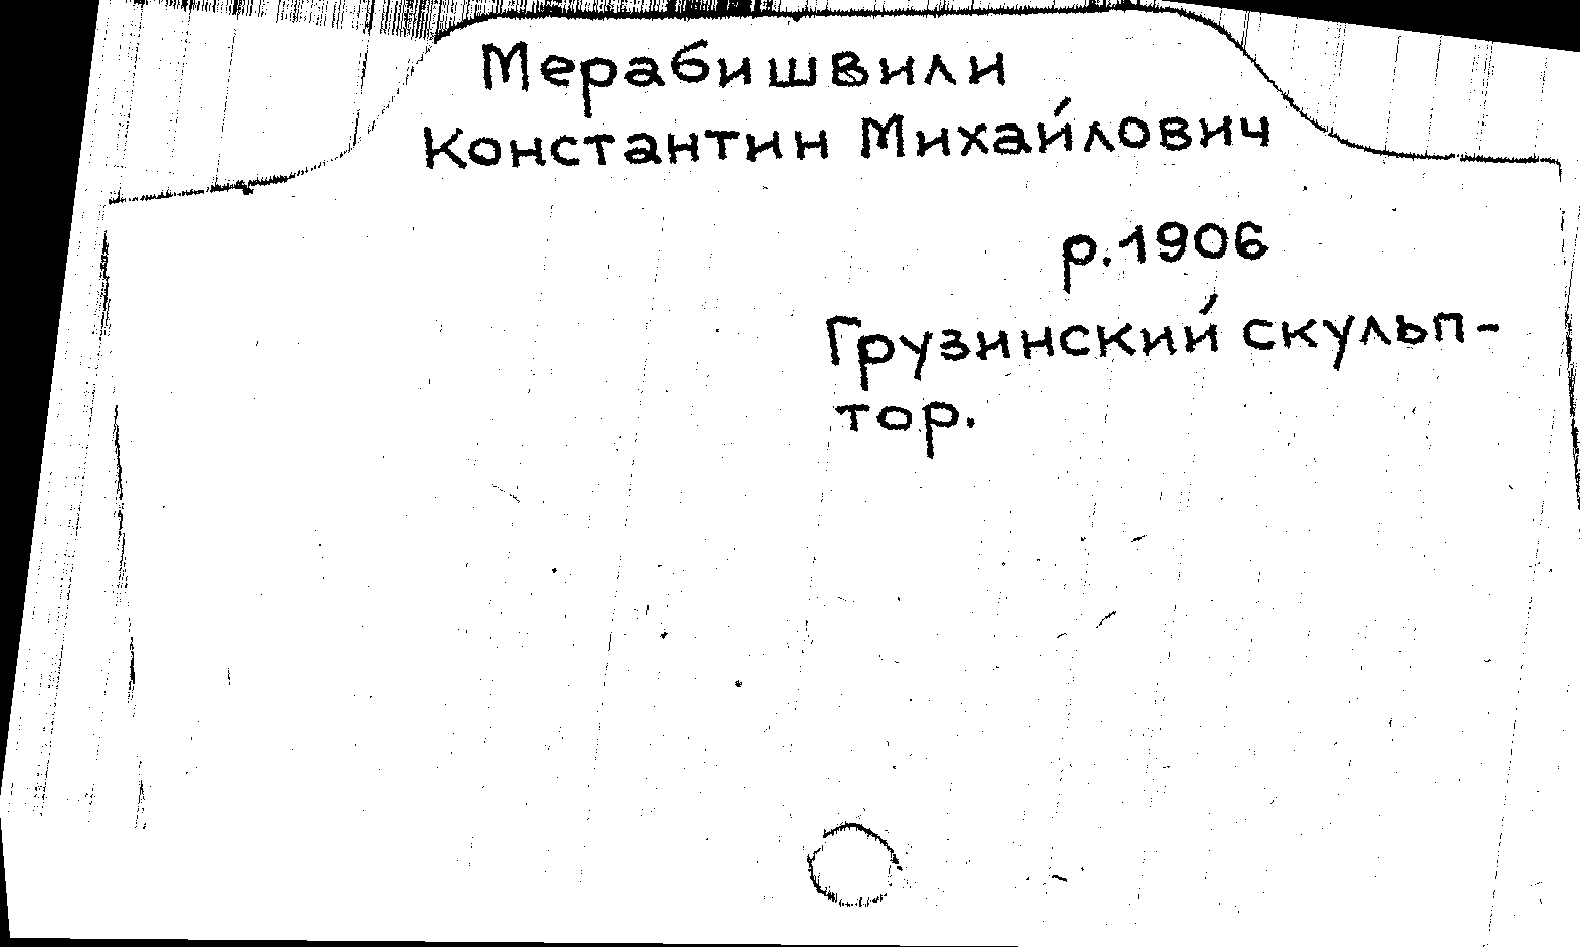 Мерабишвили
Константин Михайлович
р.1906
Грузинский скульп-
тор.